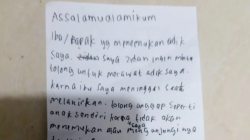 Assalamualaimkum
ibu/Bapak yg menemukan adik
saya. saya titan intin minta
tolong untuk merawat adik saya.
karna ibu saya meninggal seak
melahirkan. tolong anggap seperti
anak sendiri karna tidak akan
menemukan atau mengunjungi nya